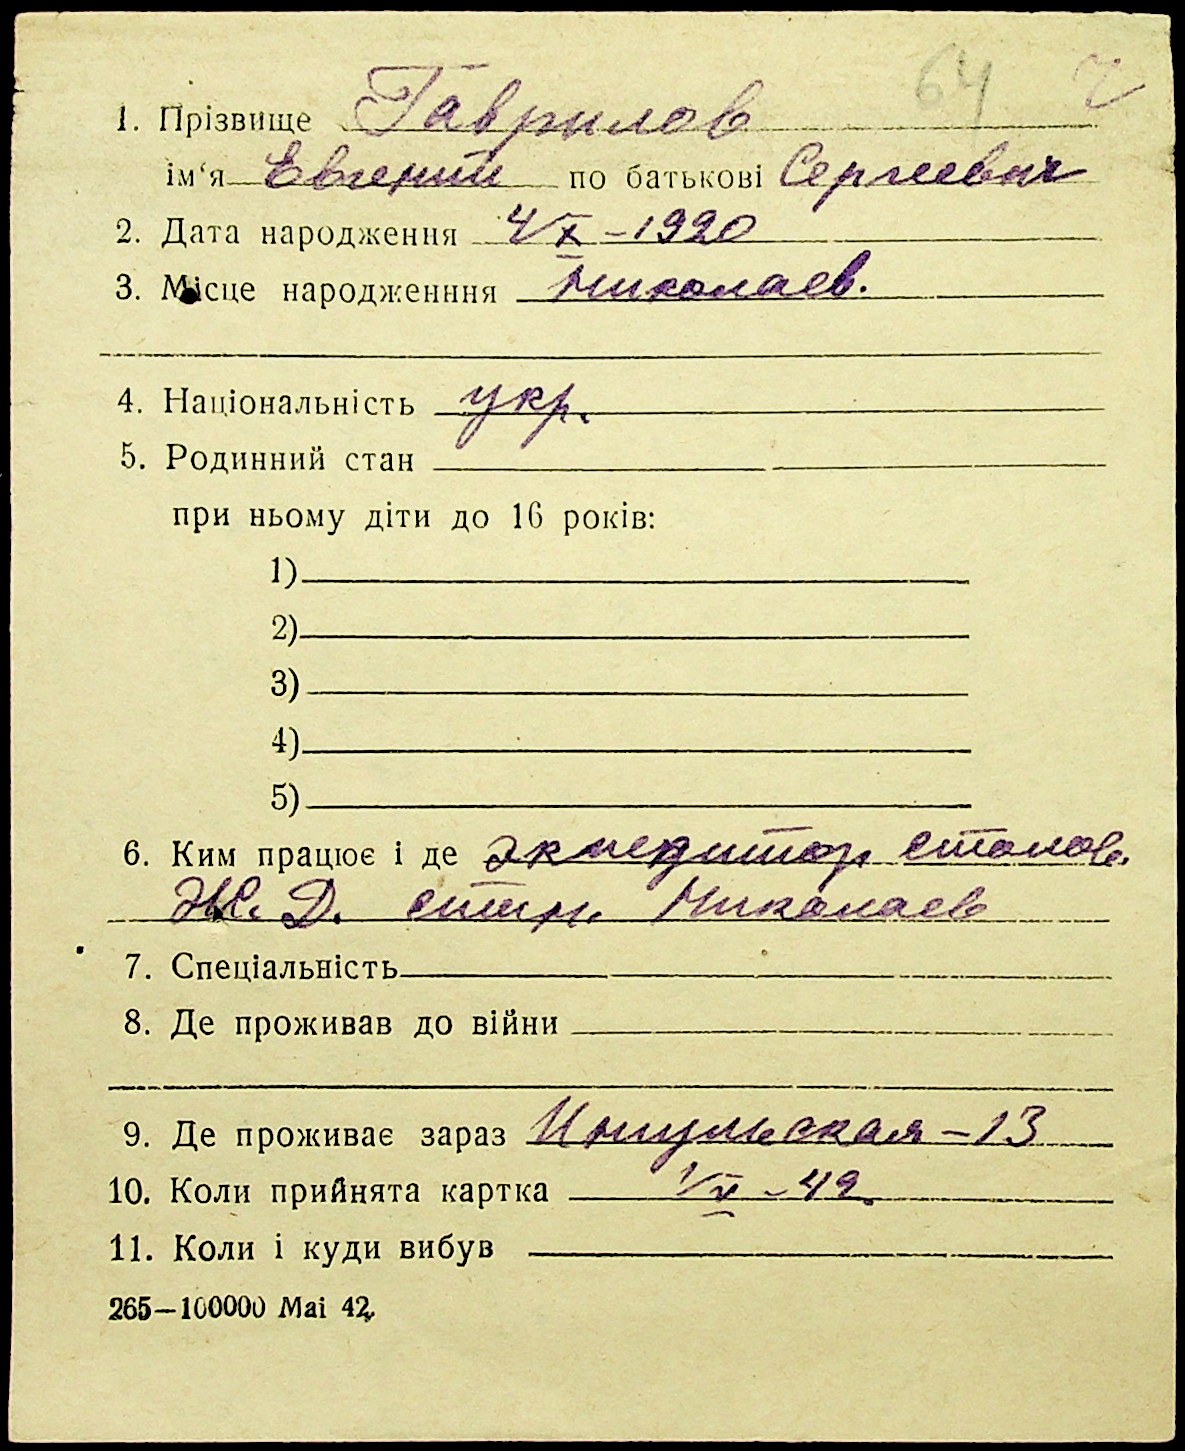 64
1. Прізвище Гаврилов
ім'я Евгений по батькові Сергеевич
2. Дата народження 4/X – 1920
3. Місце народженння Николаев.
4. Національність укр.
5. Родинний стан
при ньому діти до 16 років:
1)
2)
3)
4)
5)
6. Ким працює і де экспедитор столов.
Ж. Д. станц. Николаев
7. Спеціальність
8. Де проживав до війни
9. Де проживає зараз Ингульская – 13
10. Коли прийнята картка – 42.
11. Коли і куди вибув
265—100000 Маі 42.